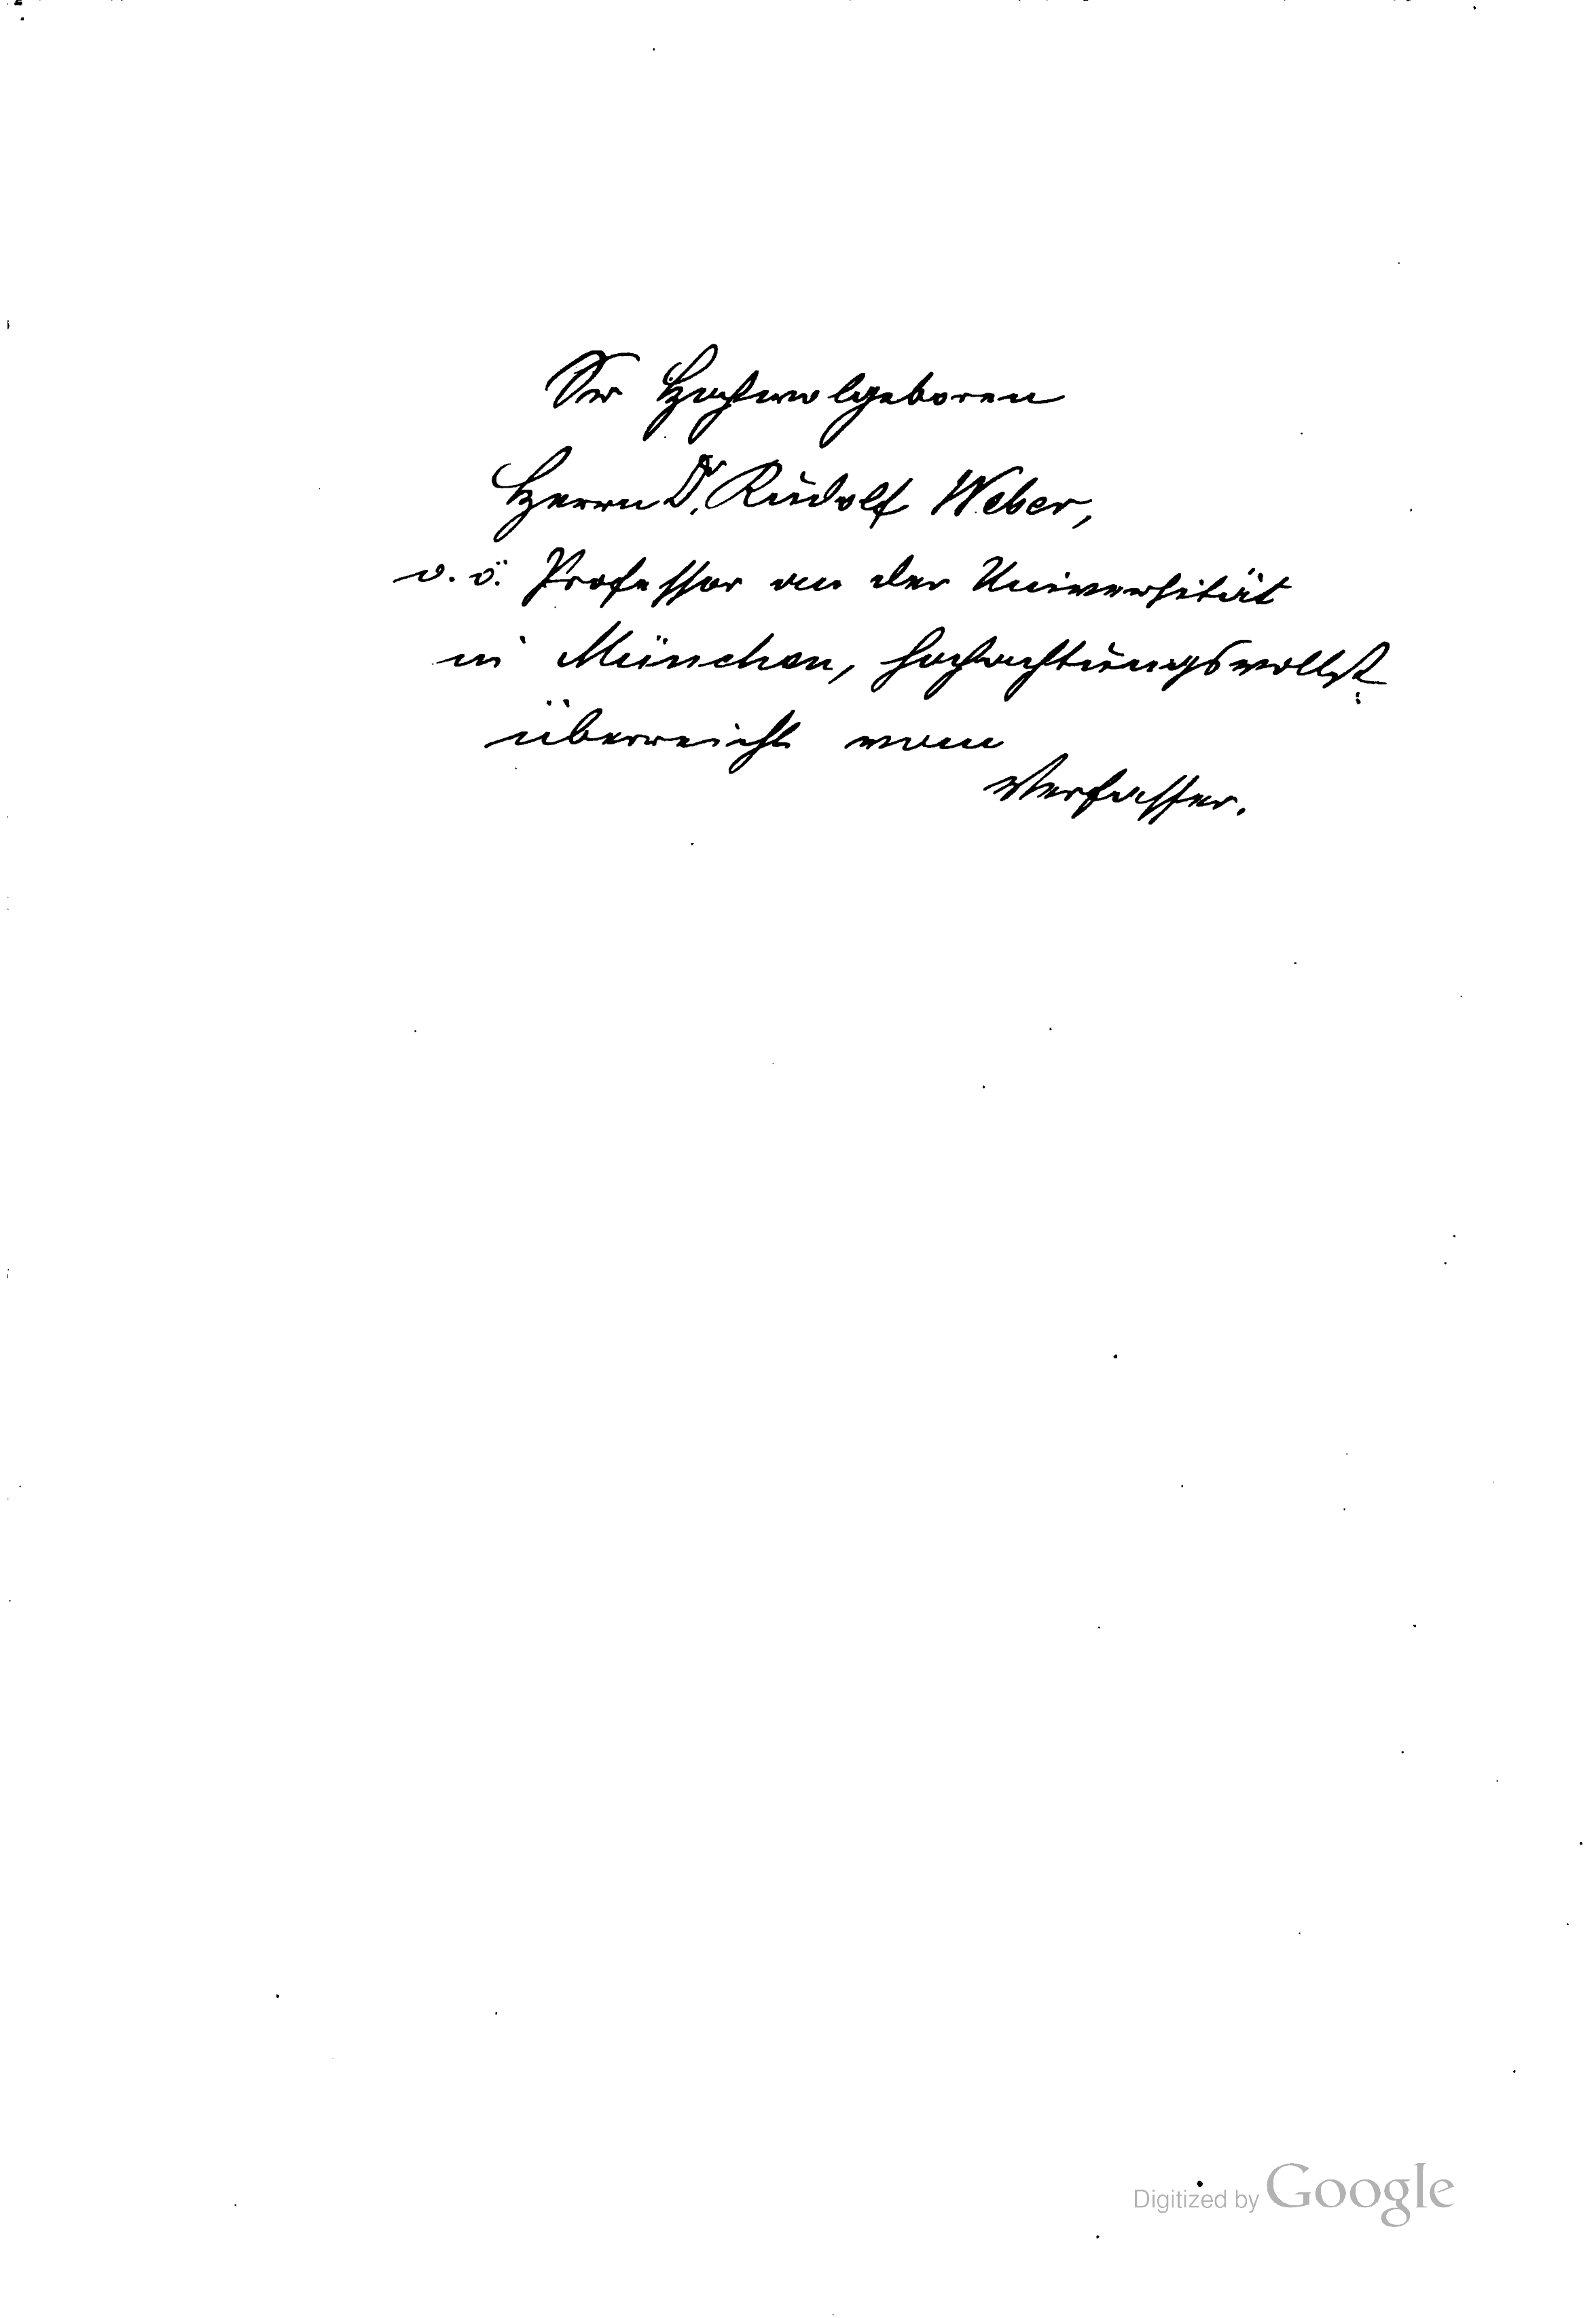 Sr Hochwolgeboren
Herrn Dr. Rudolf Weber,
o. ö. Professor an der Universität
in München, hochachtungsvollst
überreicht vom
Verfasser.
Digitized by Google